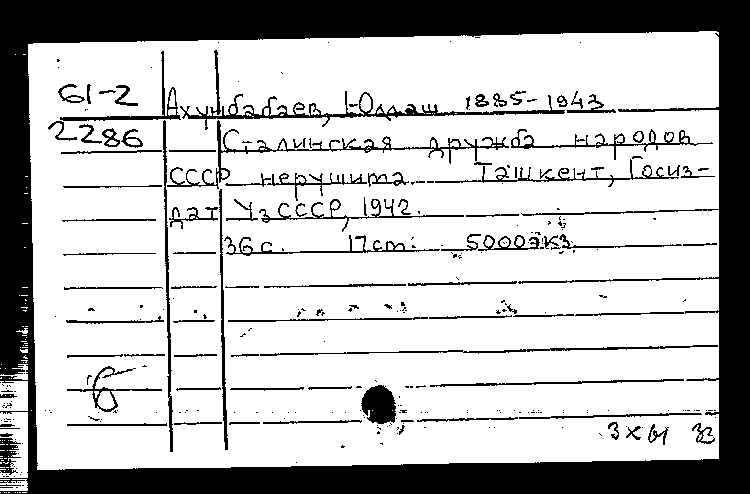 61-2 Ахунбабаев, Юлдаш 1885-1943
2286 Сталинская дружба народов
СССР нерушима. Ташкент, Госиз-
дат УзССР, 1942.
36 с. 17 см. 5000 экз.
б